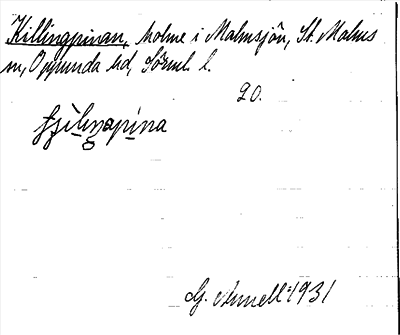 Killingpinan, holme i Malmsjön, St. Malms
sn, Oppunda hd, Sörml. l.
20.
G. Annell 1931